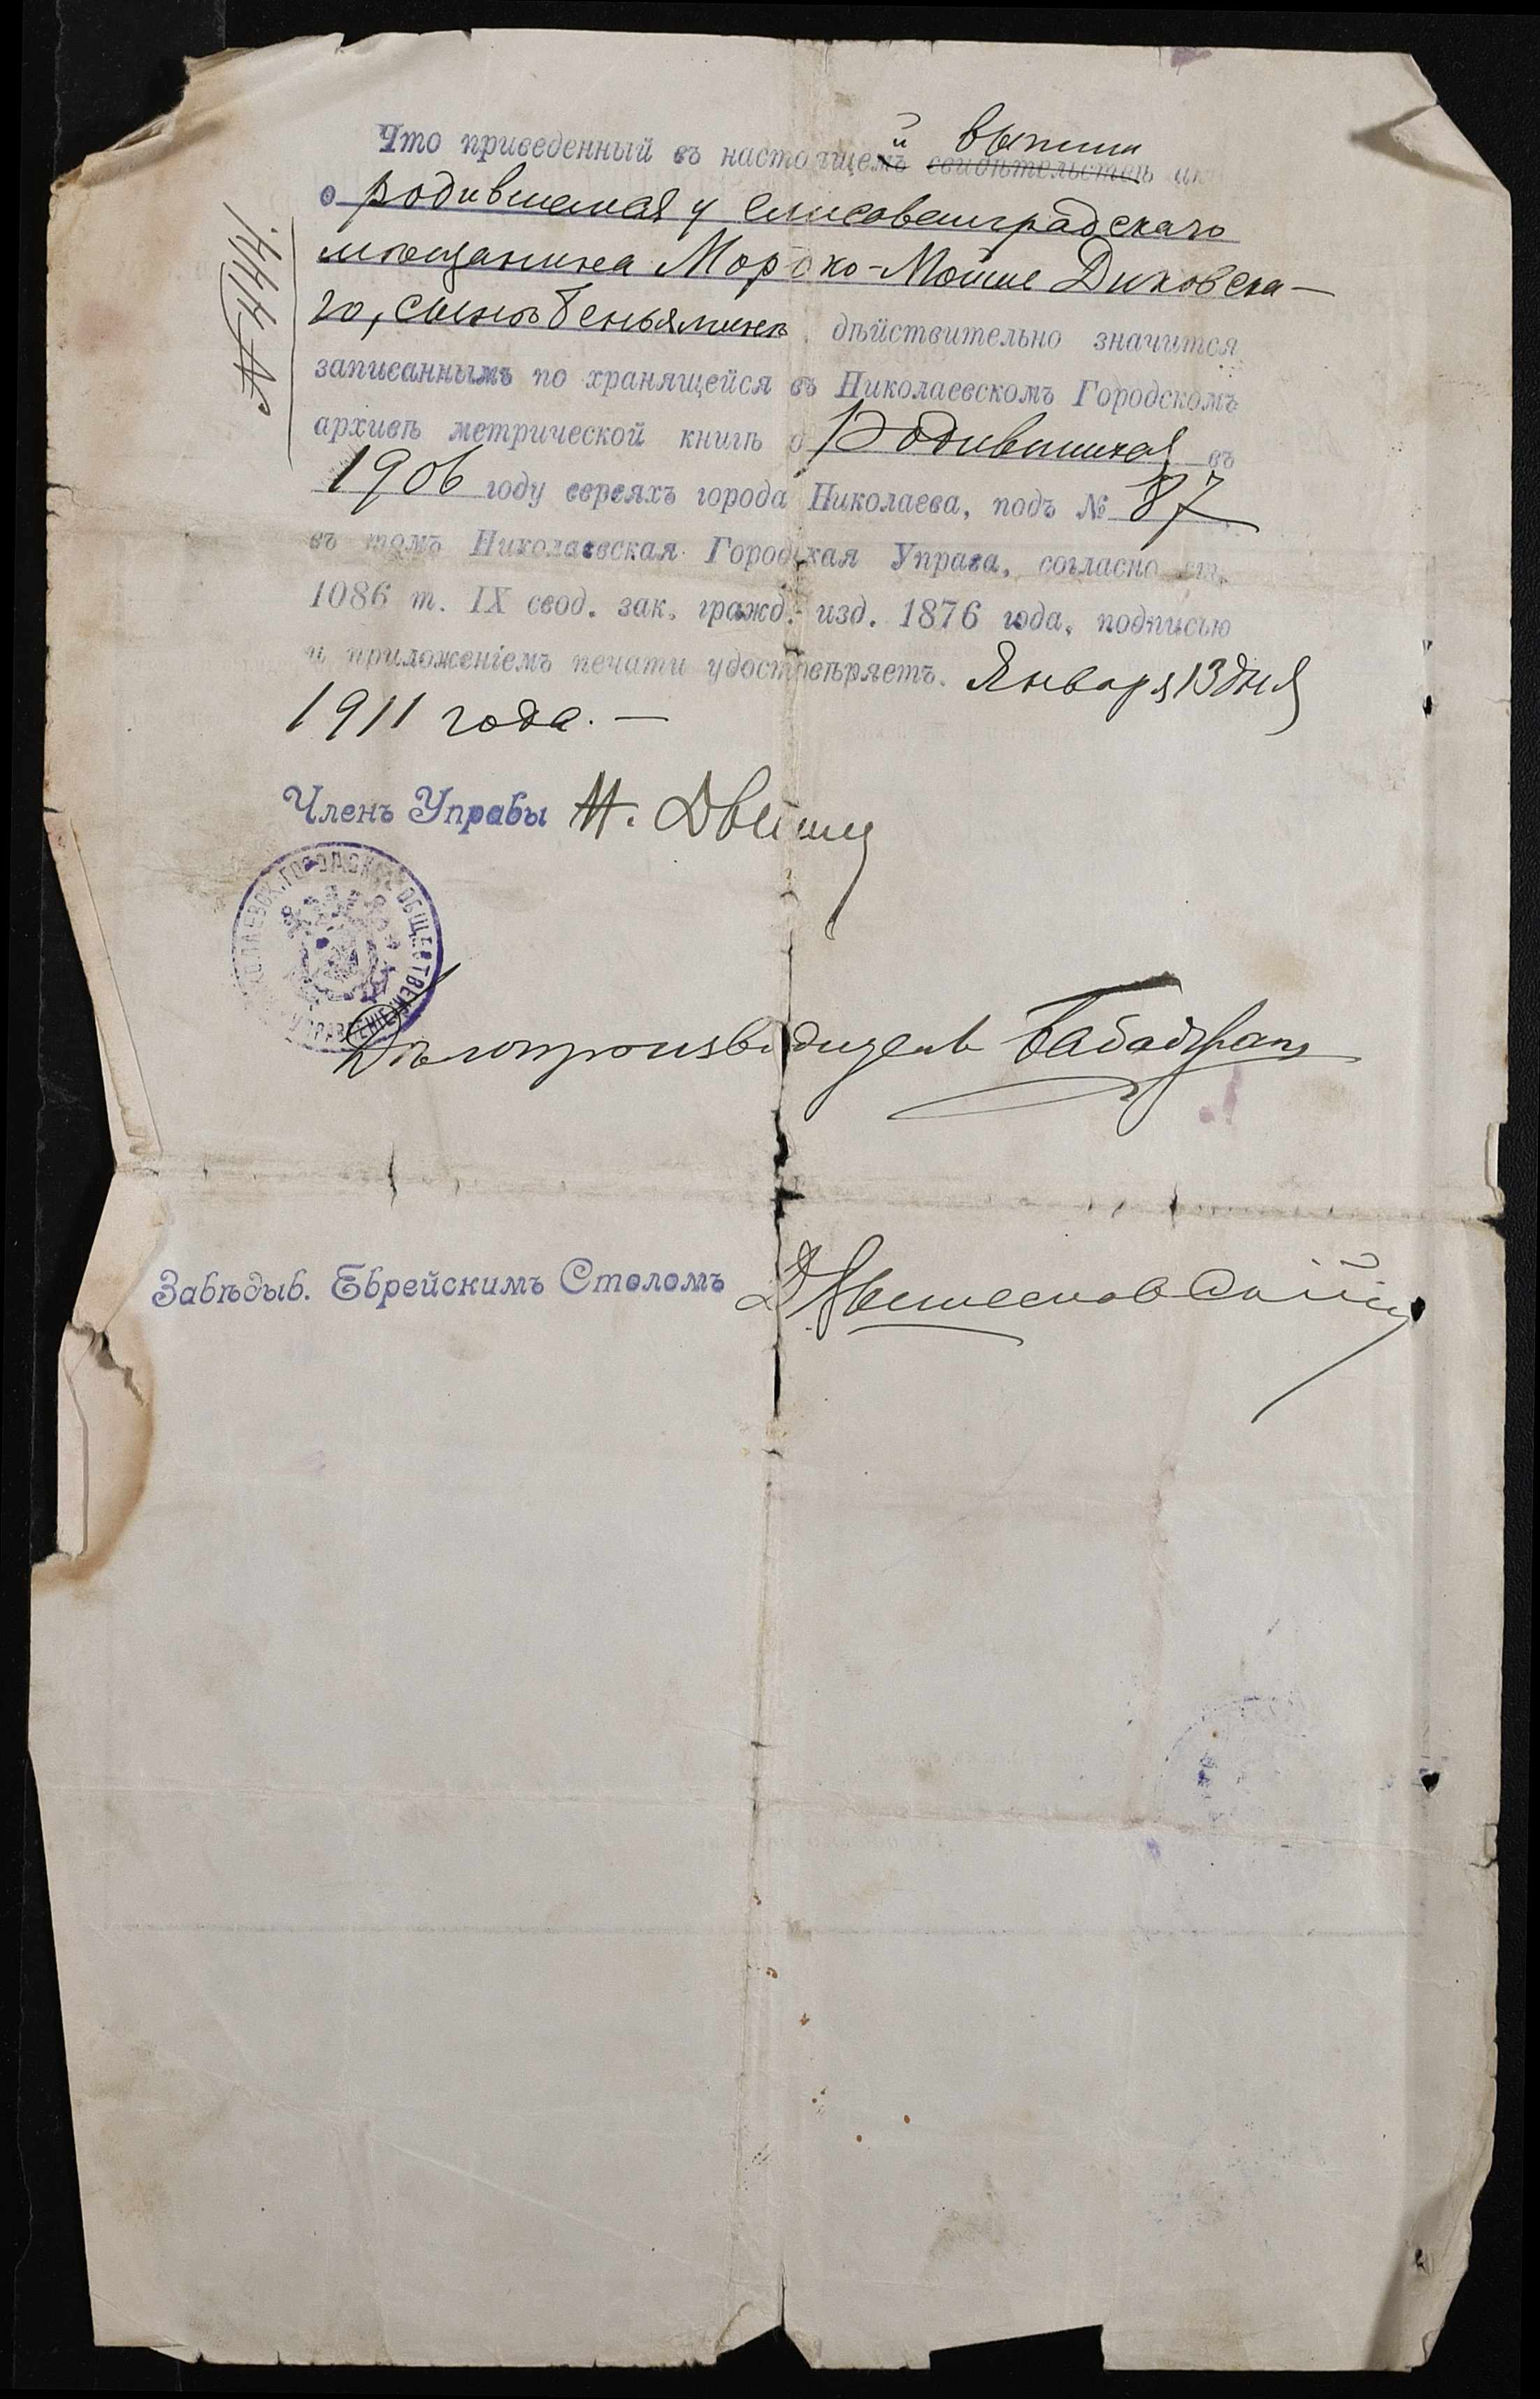 Что приведенный въ настоящей выписи актъ
о родившемся у елисаветградскаго
мѣщанина Мордко-Мойше Диковска-
го, сынѣ Беньяминѣ, дѣйствительно значится
записаннымъ по хранящейся въ Николаевскомъ Городскомъ
архивѣ метрической книгѣ о родившихся въ
1906 году евреяхъ города Николаева, подъ № 87
въ томъ Николаевская Городская Управа, согласно ст.
1086 т. IX свод. зак. гражд. изд. 1876 года, подписью
и приложеніемъ печати удостовѣряетъ. Января 13 дня
1911 года. —
Членъ Управы Н.
НИКОЛАЕВСК. ГОРОДСКОЕ ОБЩЕСТВЕН. УПРАВЛЕНІЕ
Дѣлопроизводитель
Завѣдыв. Еврейскимъ Столомъ